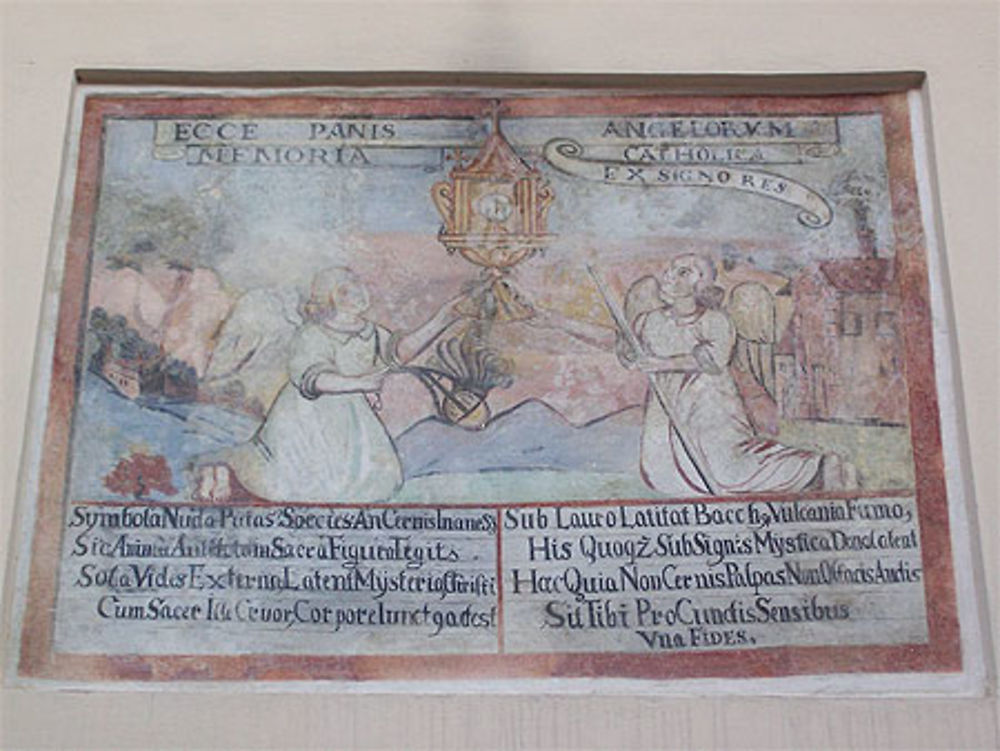 ECCE PANIS ANGELORVM
MEMORIA CATHOLICA
EX SIGNO RES
Symbola Nuda Putas Species An Cernis Inanes
Sic Animæ Sacra Figura Tegit.
Sola Vides Externa Latent Mysteria
Cum Sacer Cruor, Corpore adest
Sub Lauro Latitat Bacch9 Vulcania Fumo,
His Quoqż Sub Signis Mystica Dona latent
Hæc Quia Non Cernis Palpas Non Olfacis Audis
Sit Tibi Pro Cunctis Sensibus
Vna FIDES.